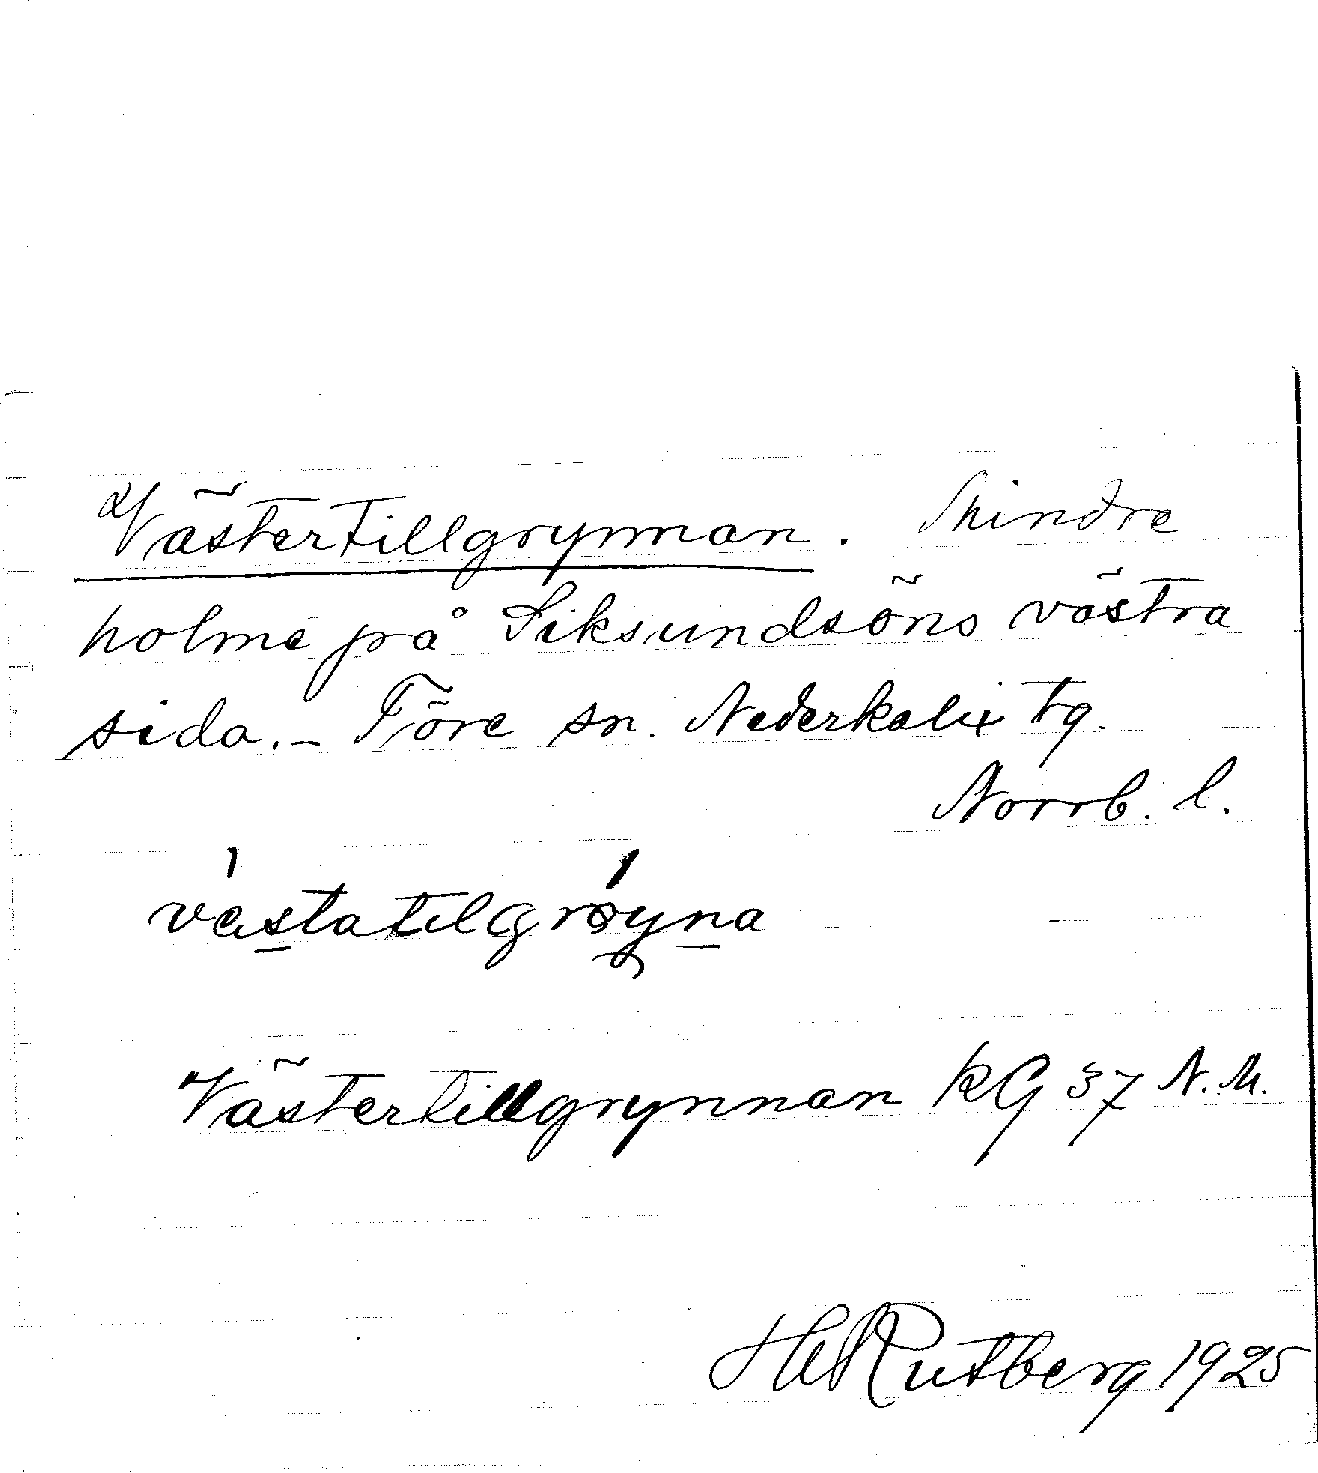 Västertillgrynnan. Mindre
holme på Siksundsöns västra
sida. - Töre sn. Nederkalix tg.
Norrb. l.
västatilgrøyna
Västertillgrynnan KG 37 N.M.
HERutberg 1925